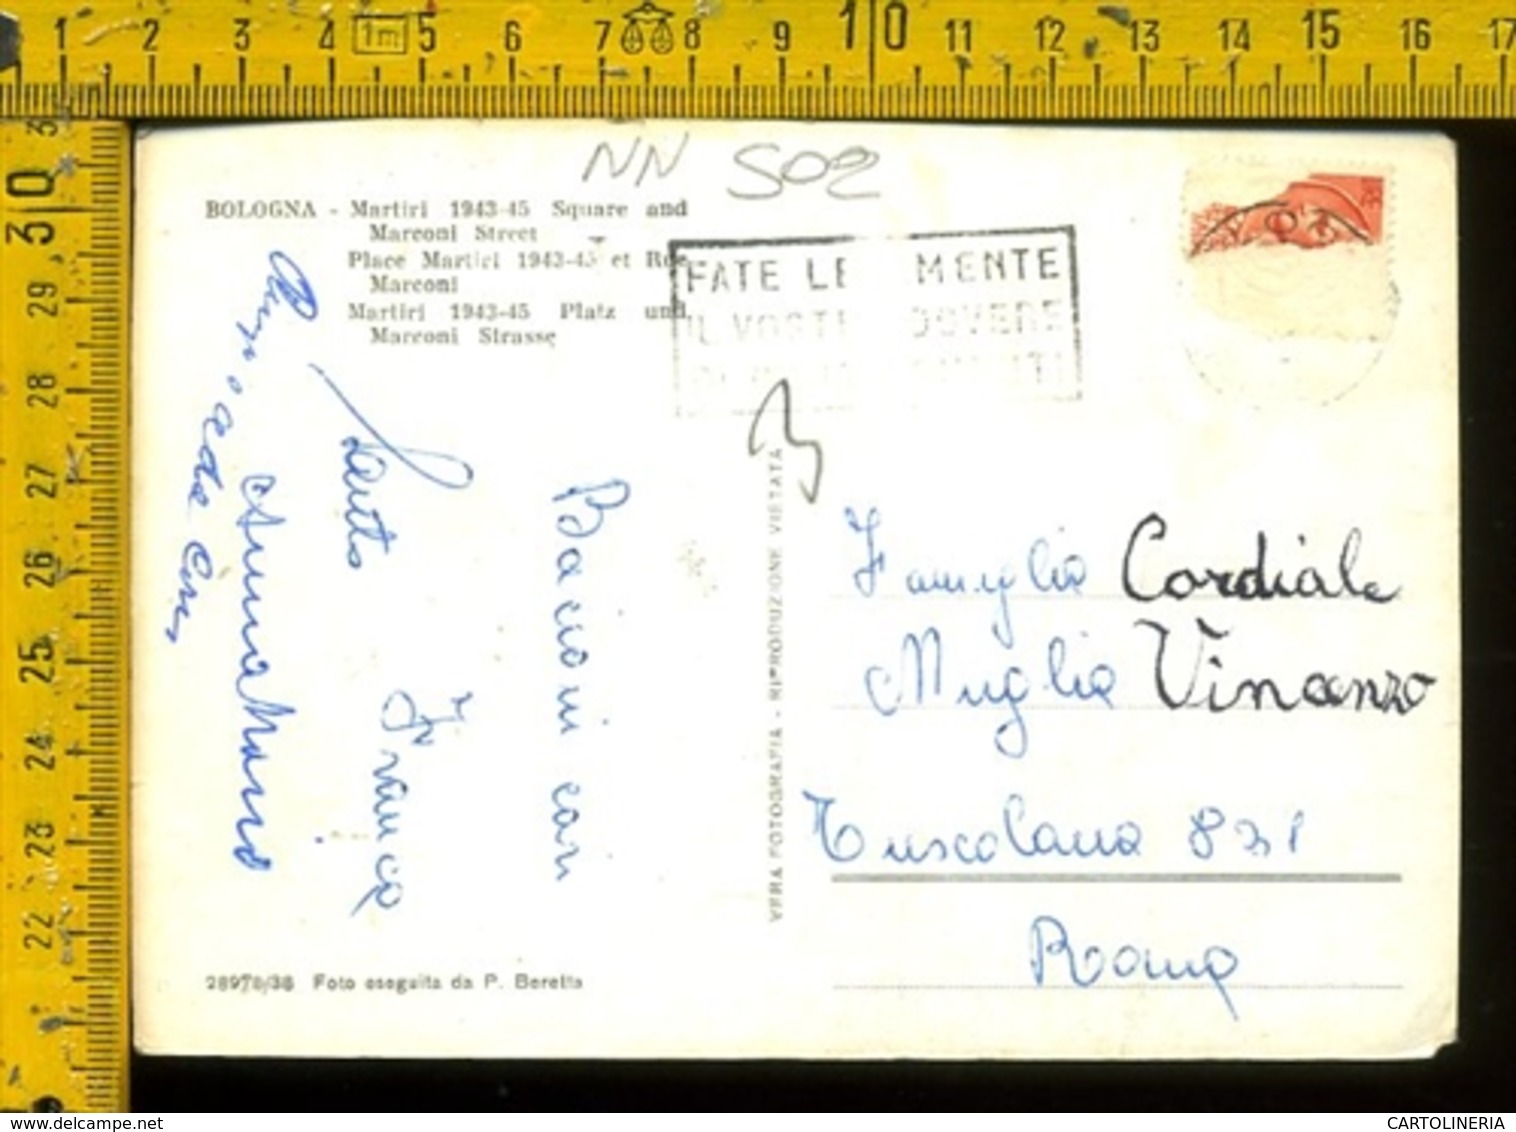 1 2 3 4 1m 5 6 7 8 9 10 11 12 13 14 15 16 17
3
30
29
28
27
26
25
24
23
22
NN 502
BOLOGNA - Martiri 1943-45 Square and
Marconi Street
Place Martiri 1943-45 et Rue
Marconi
Martiri 1943-45 Platz und
Marconi Strasse
FATE LE MENTE
IL VOST DOVERE
Bacioni cari
Franca
VERA FOTOGRAFIA - RIPRODUZIONE VIETATA
Famiglia Cordiale
Muglia Vincenzo
Tuscolana 831
Roma
28978/38 Foto eseguita da P. Beretta
www.delcampe.net
CARTOLINERIA